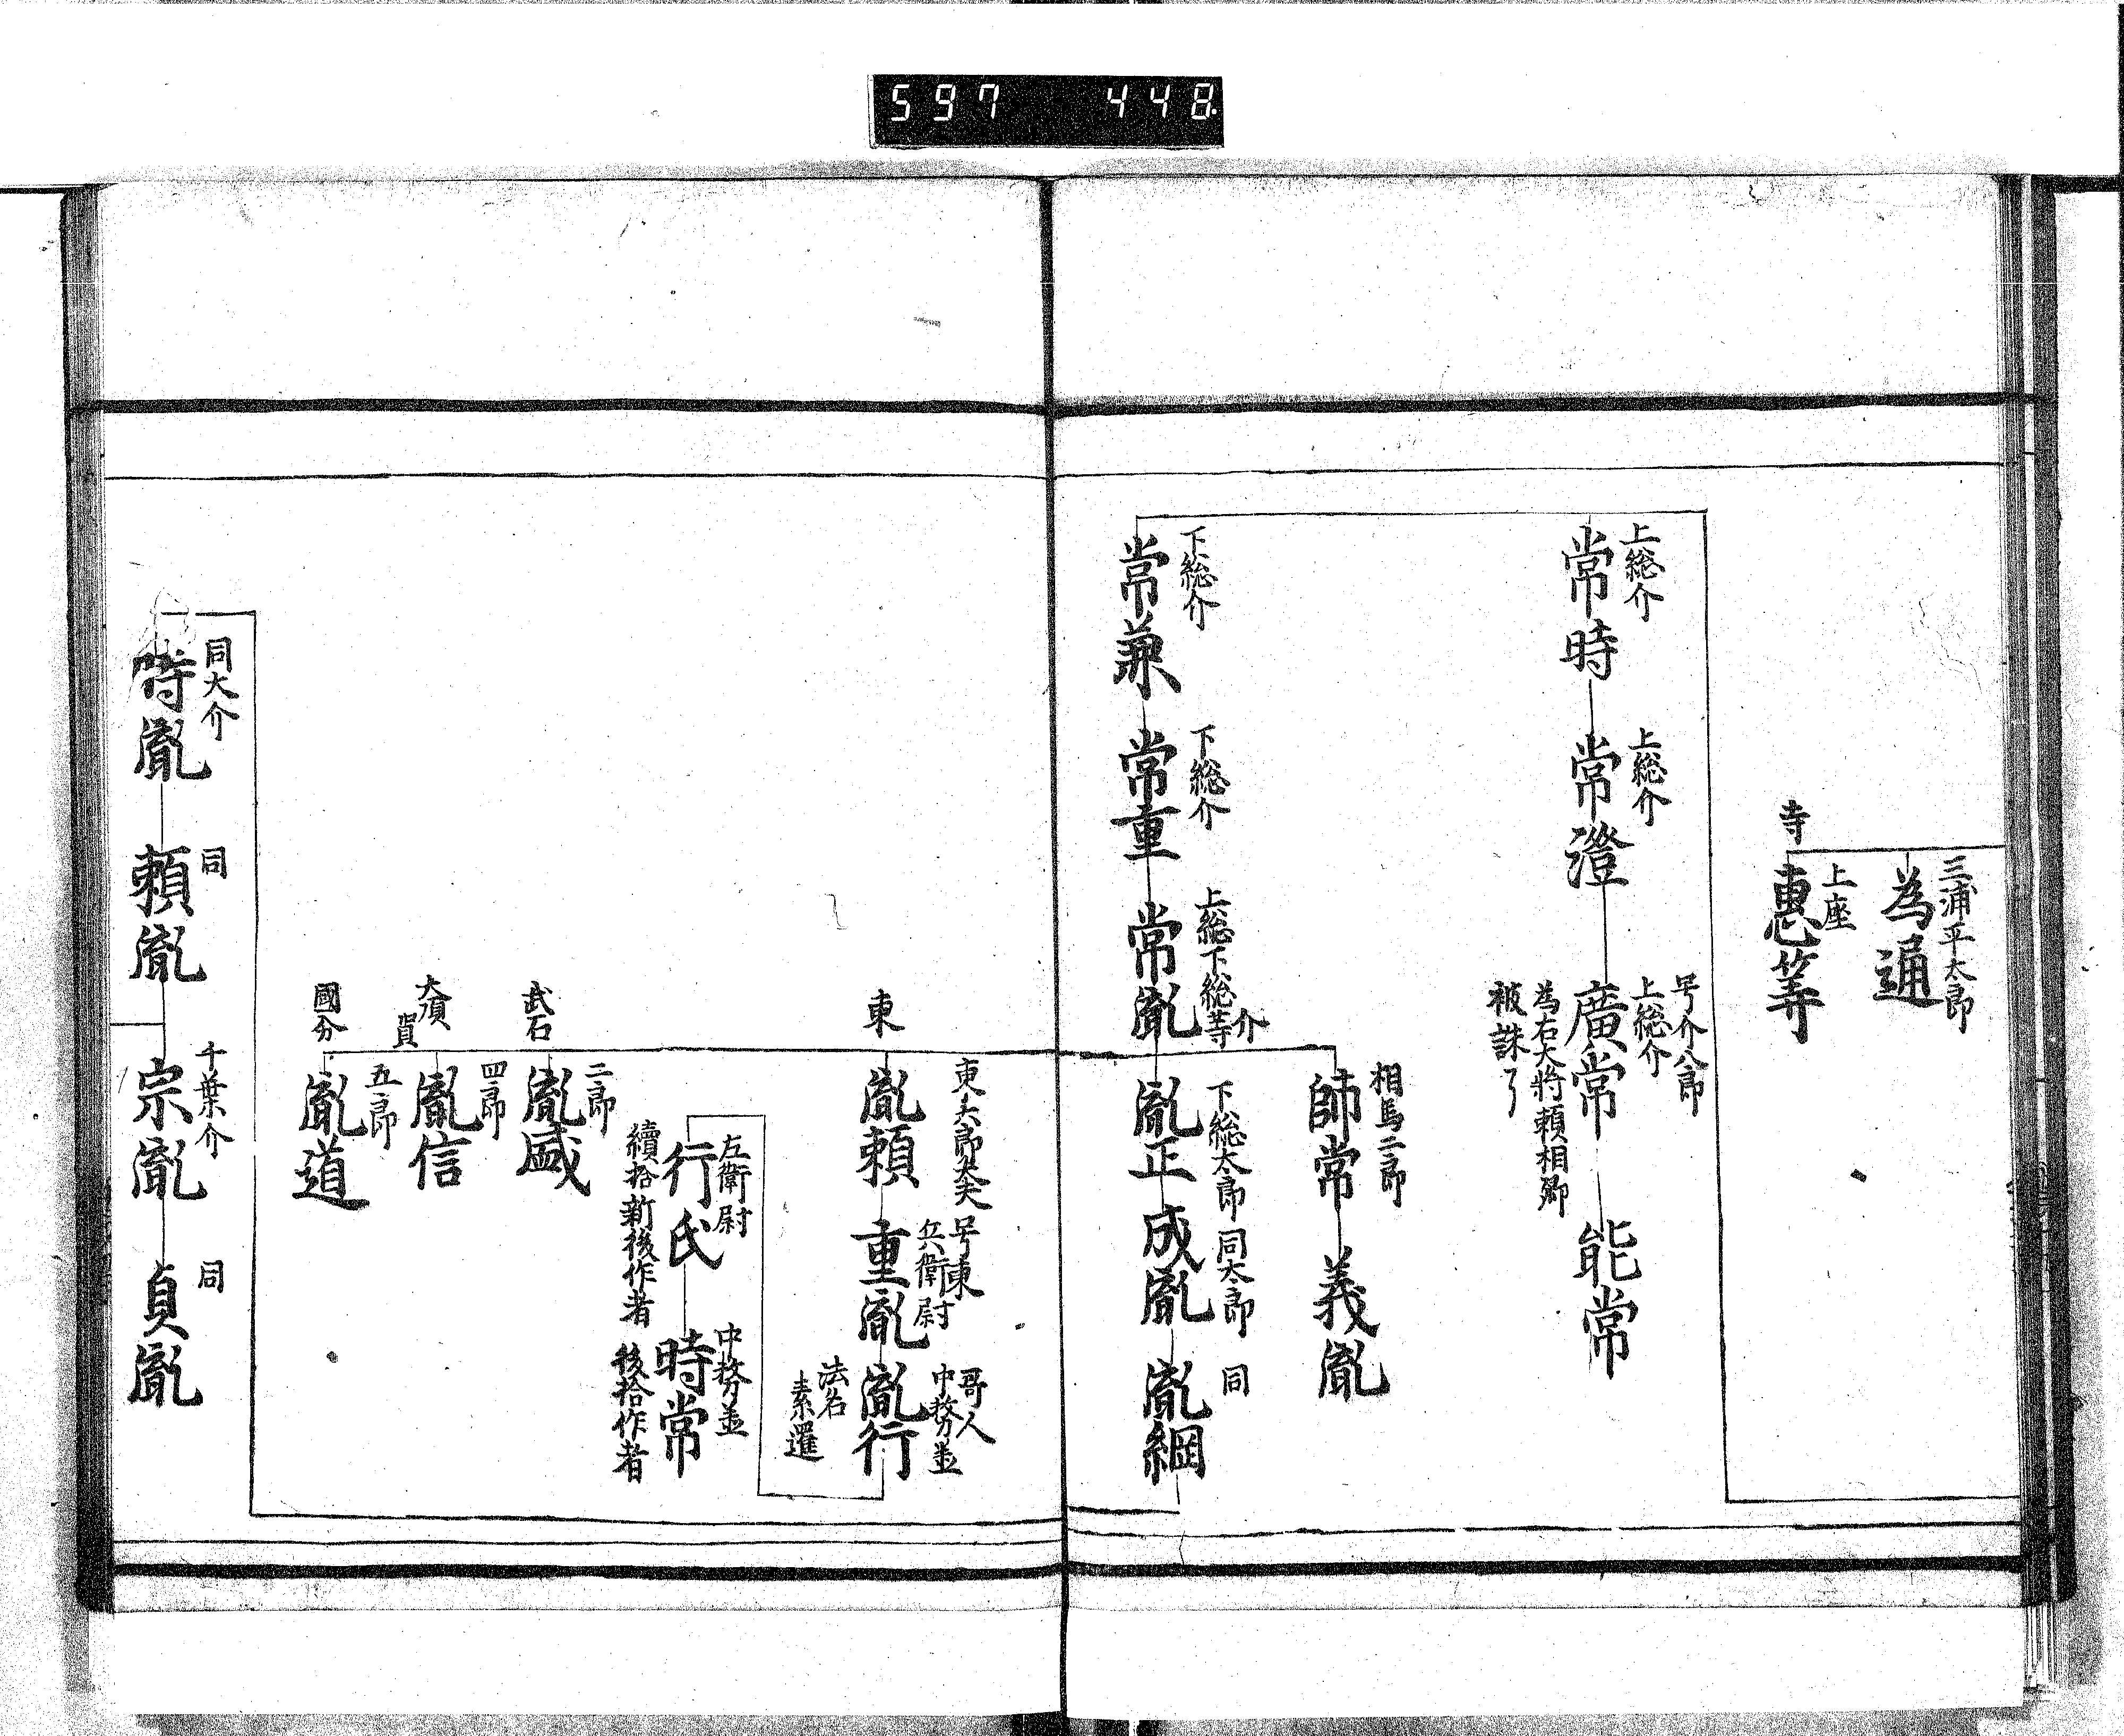 597 448
三浦平太郎
為通
寺
上座
惠等
上総介
常時
上総介
常澄
号介八郎
上総介
廣常
為右大将頼相卿
被誅了
能常
下総介
常兼
下総介
常重
上総下総等介
常胤
相馬二郎
師常
義胤
下総太郎
胤正
同太郎
成胤
同
胤綱
東
東六郎大夫
胤頼
号東
兵衛尉
重胤
哥人
中務丞
胤行
法名
素暹
左衛尉
行氏
續拾新後作者
中務丞
時常
後拾作者
武石
二郎
胤盛
大須賀
四郎
胤信
國分
五郎
胤道
同大介
時胤
同
頼胤
千葉介
宗胤
同
貞胤